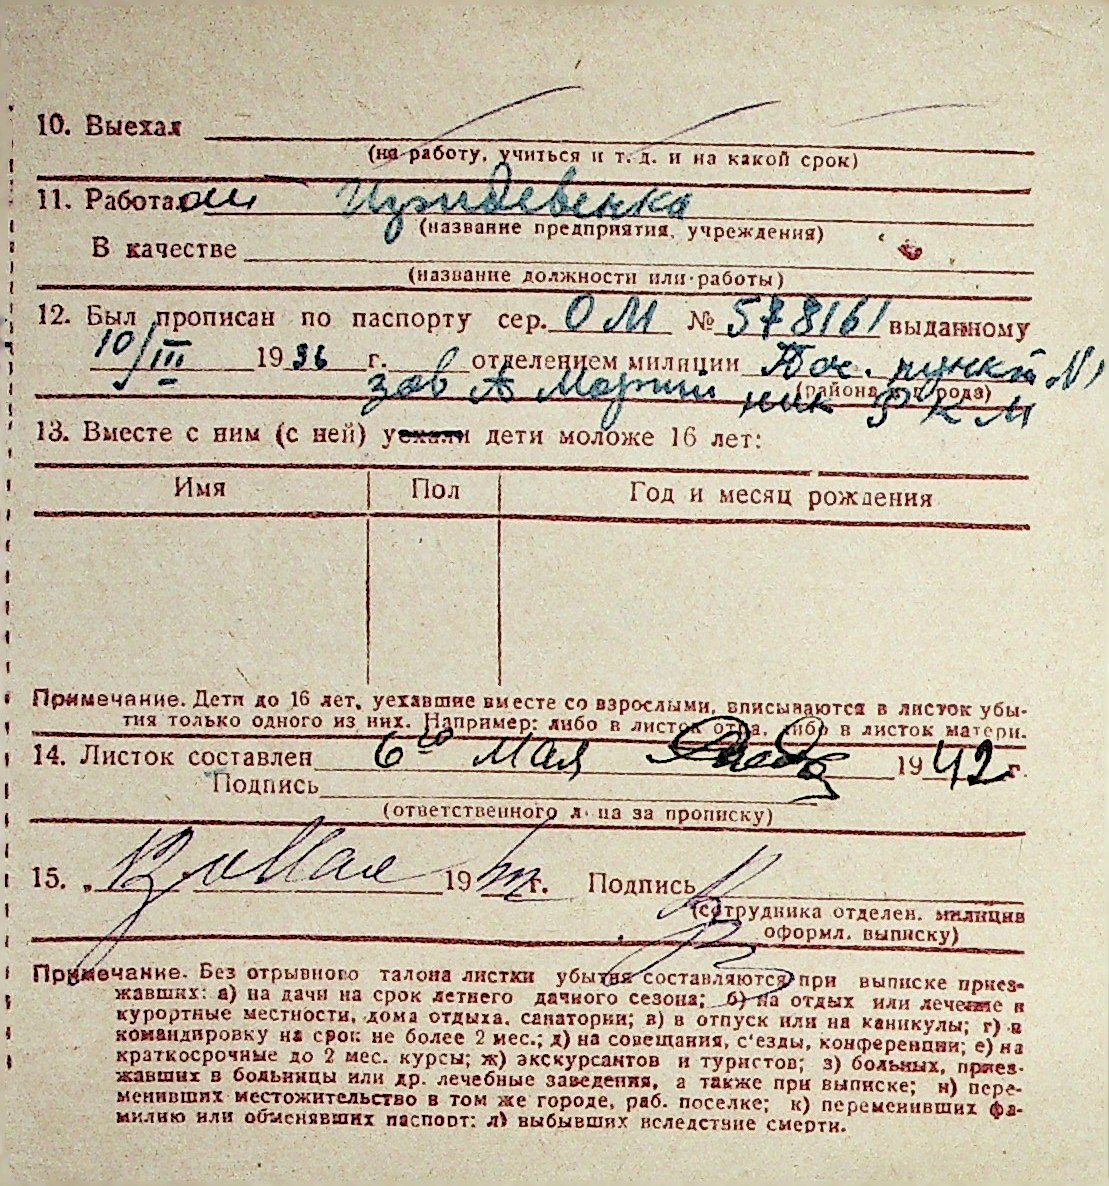 10. Выехал
(на работу, учиться и т. д. и на какой срок)
11. Работал Иждивенка
(название предприятия, учреждения)
В качестве
(название должности или работы)
12. Был прописан по паспорту сер. ОМ № 578161 выданному
10/III 1936 г. отделением милиции пункт №1
(района, города)
зав А Марти ник РКМ
13. Вместе с ним (с ней) уехали дети моложе 16 лет:
Имя Пол Год и месяц рождения
Примечание. Дети до 16 лет, уехавшие вместе со взрослыми, вписываются в листок убы-
тия только одного из них. Например: либо в листок отца, либо в листок матери.
14. Листок составлен 6го Мая 1942 г.
Подпись
(ответственного лица за прописку)
15. „ Мая 19 г. Подпись
(сотрудника отделен. милиции
оформл. выписку)
Примечание. Без отрывного талона листки убытия составляются при выписке приез-
жавших: а) на дачи на срок летнего дачного сезона; б) на отдых или лечение в
курортные местности, дома отдыха, санатории; в) в отпуск или на каникулы; г) в
командировку на срок не более 2 мес.; д) на совещания, с'езды, конференции; е) на
краткосрочные до 2 мес. курсы; ж) экскурсантов и туристов; з) больных, приез-
жавших в больницы или др. лечебные заведения, а также при выписке; и) пере-
менивших местожительство в том же городе, раб. поселке; к) переменивших фа-
милию или обменявших паспорт; л) выбывших вследствие смерти.